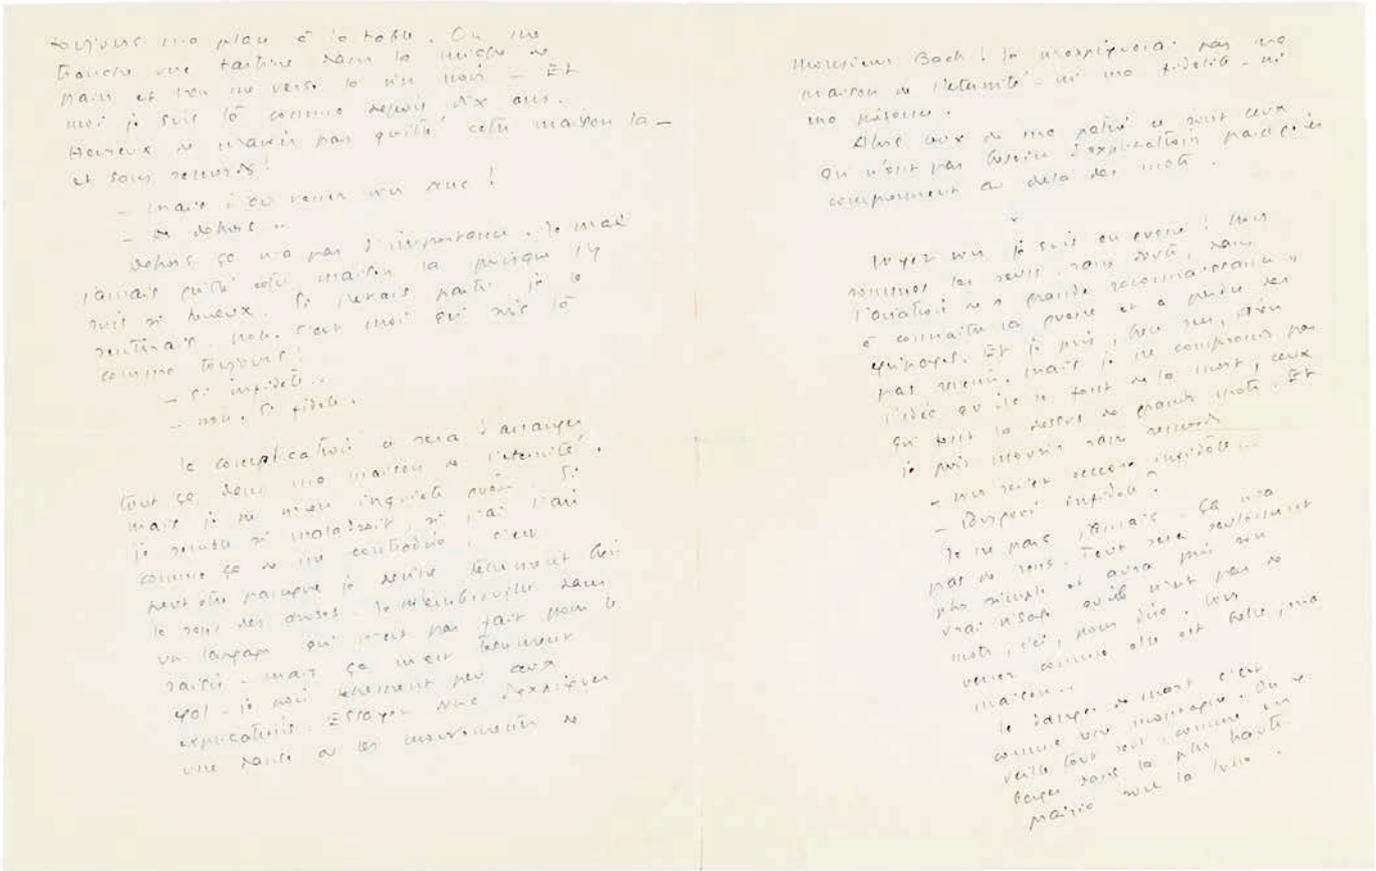 toujours ma place à la table. On me
tranche une tartine dans la miche de
pain et l'on me verse le vin noir – Et
moi je suis là comme depuis dix ans.
Heureux de n'avoir pas quitté cette maison là –
et sans remords !
– mais d'où venez vous donc !
– De dehors ..
Dehors ça n'a pas d'importance. Je n'ai
jamais quitté cette maison là puisque j'y
suis si heureux. Si j'étais parti je le
sentirais. Non. C'est moi qui suis là
comme toujours !
– Si infidèle ..
– non. Si fidèle.
La complication ce sera d'arranger
tout ça dans ma maison de l'éternité.
mais je ne m'en inquiète guère. Si
je semble si maladroit, si j'ai l'air
comme ça de me contredire, c'est
peut être parce que je devine tellement bien
le sens des choses. Je m'embrouille dans
un langage qui n'est pas fait pour le
saisir – mais ça m'est tellement
égal – je crois tellement peu aux
explications. Essayez donc d'expliquer
une danse ou les mouvements de
Monsieur Bach ! Je n'expliquerai pas ma
maison de l'éternité – ni ma fidélité – ni
ma
Alors ceux de ma patrie ce sont ceux
qui n'ont pas besoin d'explication parce qu'ils
comprennent au delà des mots.
Voyez vous je suis en guerre ! Nous
sommes les seuls, sans doute, dans
l'aviation de grande reconnaissance,
à connaître la guerre et à perdre des
équipages. Et je puis, bien sûr, n'en
pas revenir. mais je ne comprends pas
l'idée qu'ils se font de la mort, ceux
qui font là dessus de grands mots. Et
je puis mourir sans remords
– vous serez encore infidèle ...
– Pourquoi infidèle ?
Je ne pars jamais. Ça n'a
pas de sens. Tout sera seulement
plus simple et aura pris son
vrai visage qu'ils n'ont pas de
mots, ici, pour dire. Vous
verrez comme elle est belle, ma
maison ..
Le danger de mort c'est
comme une montagne. On y
veille tout seul, comme un
berger dans la plus haute
prairie sous la lune.